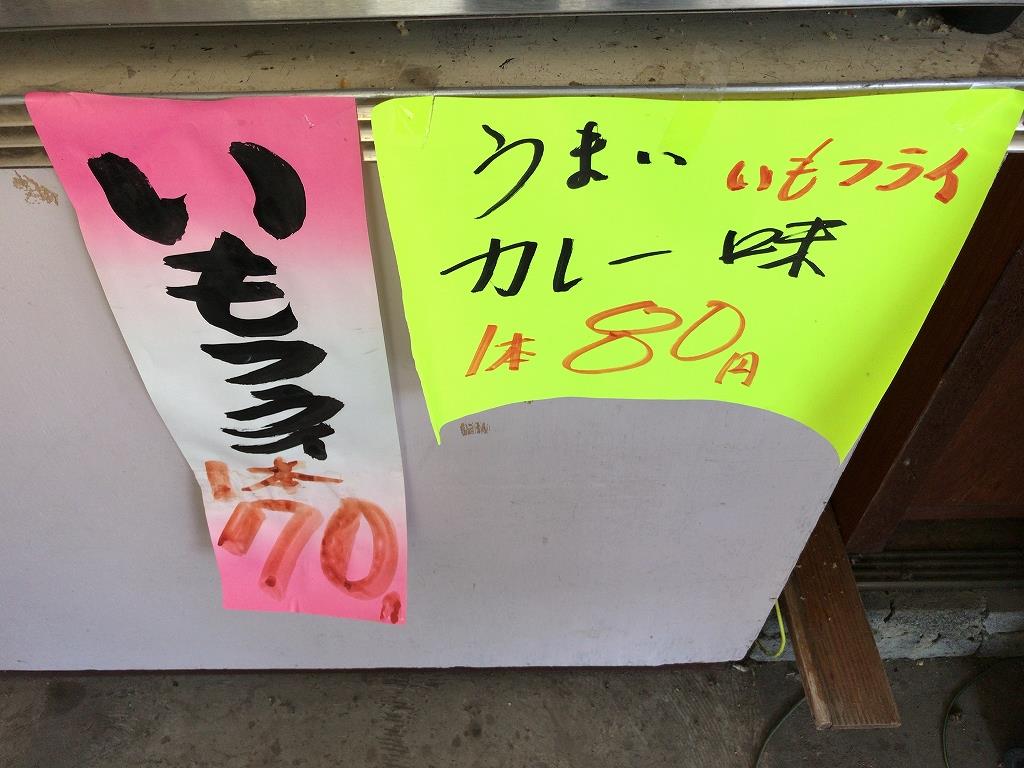 いもフライ
1本
70円
うまい いもフライ
カレー味
1本 80円